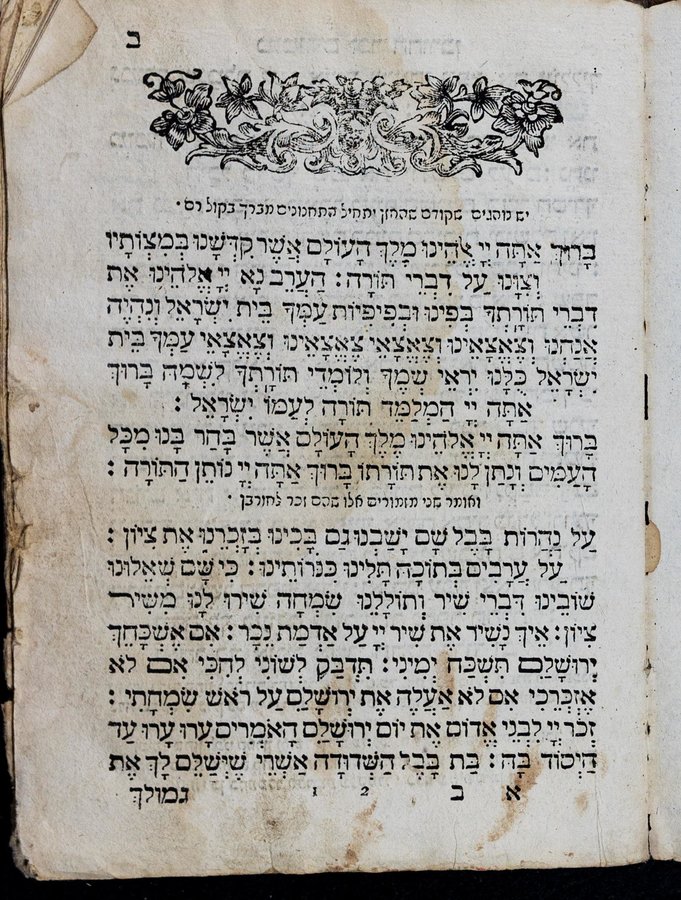 ב
יש נוהגים שקודם שהחזן יתחיל התחנונים מברך בקול רם ·
בָּרוּךְ אַתָּה יְיָ אֱלֹהֵינוּ מֶלֶךְ הָעוֹלָם אֲשֶׁר קִדְּשָׁנוּ בְּמִצְוֹתָיו
וְצִוָּנוּ עַל דִּבְרֵי תוֹרָה : הַעֲרֵב נָא יְיָ אֱלֹהֵינוּ אֶת
דִּבְרֵי תוֹרָתְךָ בְּפִינוּ וּבְפִיפִיּוֹת עַמְּךָ בֵּית יִשְׂרָאֵל וְנִהְיֶה
אֲנַחְנוּ וְצֶאֱצָאֵינוּ וְצֶאֱצָאֵי צֶאֱצָאֵינוּ וְצֶאֱצָאֵי עַמְּךָ בֵּית
יִשְׂרָאֵל כֻּלָּנוּ יִרְאֵי שְׁמֶךָ וְלוֹמְדֵי תוֹרָתְךָ לִשְׁמָהּ בָּרוּךְ
אַתָּה יְיָ הַמְלַמֵּד תּוֹרָה לְעַמּוֹ יִשְׂרָאֵל :
בָּרוּךְ אַתָּה יְיָ אֱלֹהֵינוּ מֶלֶךְ הָעוֹלָם אֲשֶׁר בָּחַר בָּנוּ מִכָּל
הָעַמִּים וְנָתַן לָנוּ אֶת תּוֹרָתוֹ בָּרוּךְ אַתָּה יְיָ נוֹתֵן הַתּוֹרָה :
ואומר שני מזמורים אלו שהם זכר לחורבן ·
עַל נַהֲרוֹת בָּבֶל שָׁם יָשַׁבְנוּ גַם בָּכִינוּ בְּזָכְרֵנוּ אֶת צִיּוֹן :
עַל עֲרָבִים בְּתוֹכָהּ תָּלִינוּ כִּנּרוֹתֵינוּ : כִּי שָׁם שְׁאֵלוּנוּ
שׁוֹבֵינוּ דִּבְרֵי שִׁיר וְתוֹלָלֵנוּ שִׂמְחָה שִׁירוּ לָנוּ מִשִּׁיר
צִיּוֹן : אֵיךְ נָשִׁיר אֶת שִׁיר יְיָ עַל אַדְמַת נֵכָר : אִם אֶשְׁכָּחֵךְ
יְרוּשָׁלַםִ תִּשְׁכַּח יְמִינִי : תִּדְבַּק לְשׁוֹנִי לְחִכִּי אִם לֹא
אֶזְכְּרֵכִי אִם לֹא אַעֲלֶה אֶת יְרוּשָׁלַםִ עַל רֹאשׁ שִׂמְחָתִי :
זְכֹר יְיָ לִבְנֵי אֱדוֹם אֶת יוֹם יְרוּשָׁלַםִ הָאֹמְרִים עָרוּ עָרוּ עַד
הַיְסוֹד בָּהּ : בַּת בָּבֶל הַשְּׁדוּדָה אַשְׁרֵי שֶׁיְשַׁלֵּם לָךְ אֶת
א ב 2 1 גמולך